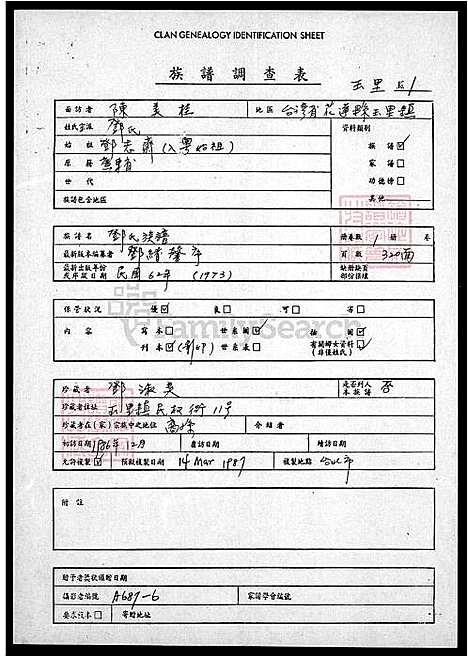 CLAN GENEALOGY IDENTIFICATION SHEET
族譜調查表
玉里 1
面訪者 陳美桂 地區 台灣省花蓮縣玉里鎮
姓氏宗派 鄧氏 資料類別
始祖 鄧志齋(入粵始祖) 族譜
原籍 家譜
世代 功德榜
族譜包含地區 其他
族譜名 鄧氏族譜 冊卷數 1 冊 卷
最新版本編纂者 鄧 頁數 320面
最新出版年份或序跋日期 民國62年 (1973) 缺冊缺頁部份條理
保管狀況 優 良 可 劣
內容 寫本 世系圖 插圖
刊本 (影印) 世系表 有關婦女資料(非僅姓氏)
FamilySearch
珍藏者 鄧淑 是否列入本族譜 否
珍藏者住址 玉里鎮民权街11号
珍藏者在(家)宗族中之地位 裔孫 介紹者
初訪日期 1986年12月 再訪日期 續訪日期
允許複製 預擬複製日期 14 Mar 1987 複製地點 台北市
附註
贈予者獎狀頒贈日期
攝影者編號 A687-6 家譜學會編號
要求複本 寄贈地址